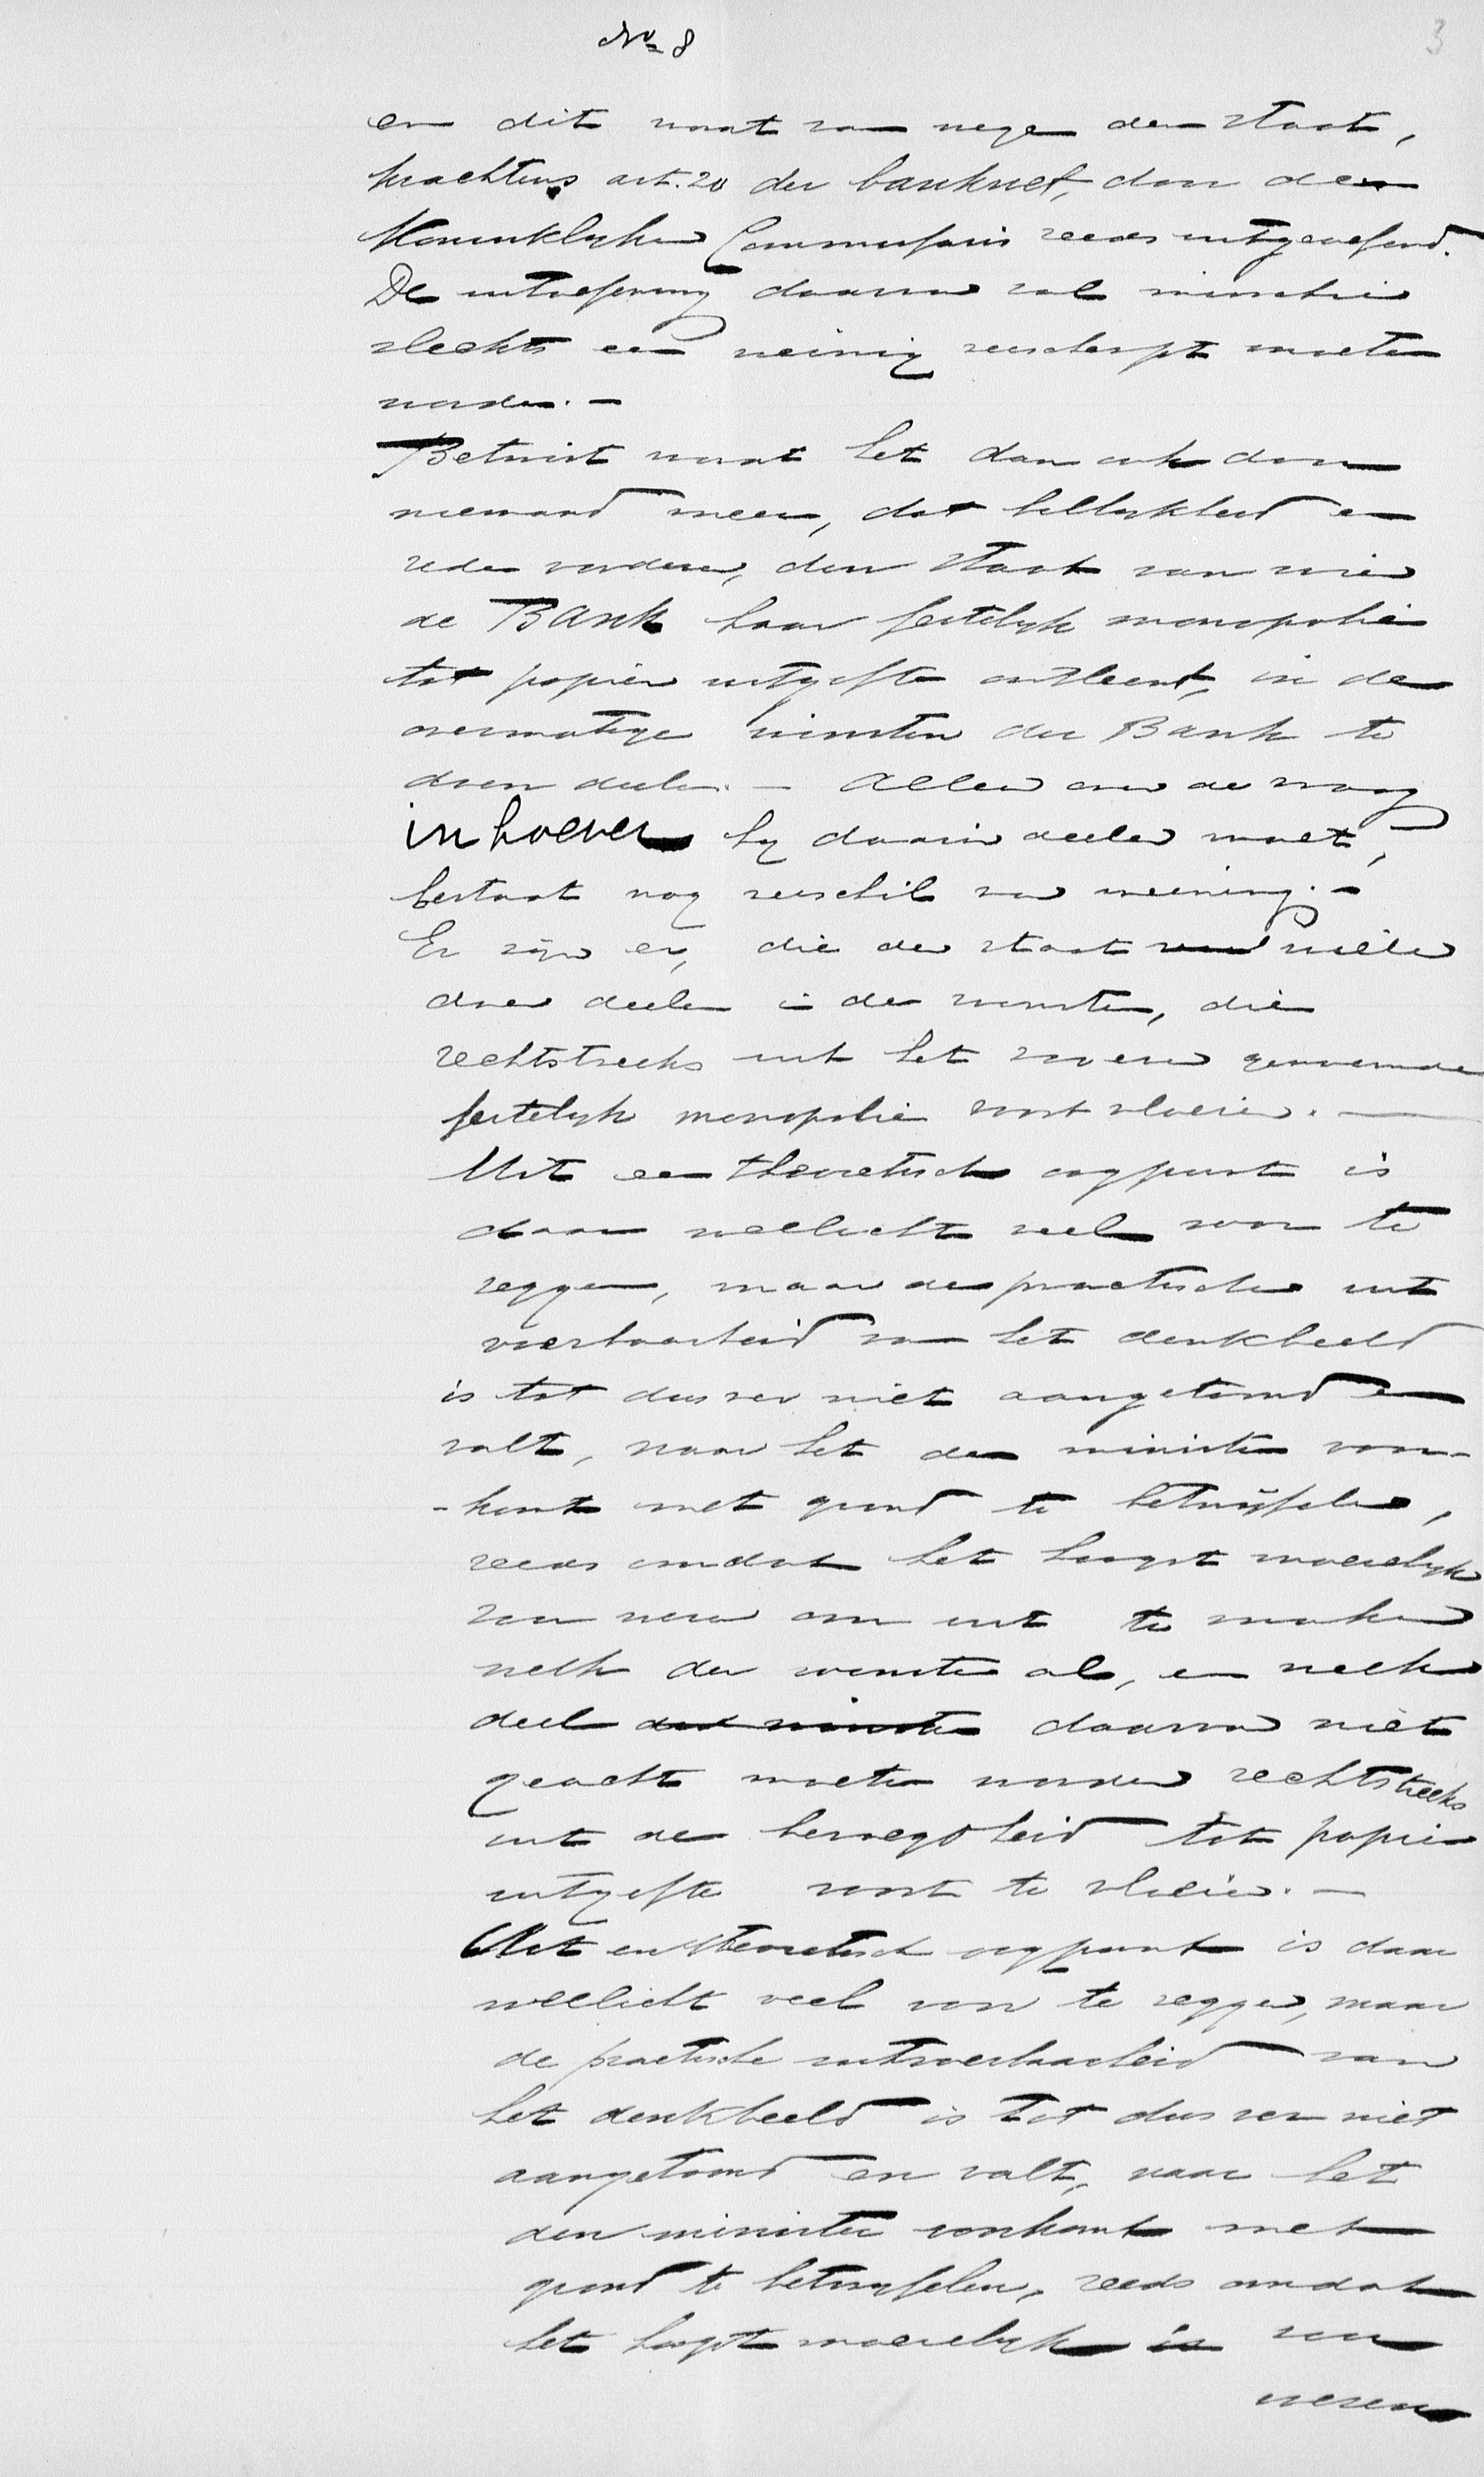 No 8
3
en dit wordt van wege den staat,
krachtens art. 20 der bankwet, door den
Koninklijken Commissaris reeds uitgeoefend.
De uitoefening daarvan zal misschien
slechts een weinig verscherpt moeten
worden. —
Betwist wordt het dan ook door
niemand meer, dat billijkheid en
rede vorderen, den staat van wien
de Bank haar feitelijk monopolie
tot papier uitgifte ontleent, in de
overmatige winsten der Bank te
doen deelen. — Alleen over de vraag
in hoever hij daarin deelen moet,
bestaat nog verschil van meening. —
Er zijn er, die den staat willen
doen deelen in de winsten, die
rechtstreeks uit het zooeven genoemde
feitelijk monopolie voortvloeien. —
Uit een theoretisch oogpunt is
daar wellicht veel voor te
zeggen, maar de practische uit
voerbaarheid van het denkbeeld
is tot dusver niet aangetoond en
valt, naar het den minister voor-
-komt met grond te betwijfelen,
reeds omdat het hoogst moeielijk
zou wezen om uit te maken
welk der winsten al, en welk
deel der winsten daarvan niet
geacht moeten worden rechtstreeks
uit de bevoegdheid tot papier
uitgifte voort te vloeien. —
Uit een theoretisch oogpunt is daar
wellicht veel voor te zeggen, maar
de practische uitvoerbaarheid van
het denkbeeld is tot dusver niet
aangetoond en valt, naar het
den minister voorkomt met
grond te betwijfelen, reeds omdat
het hoogst moeielijk is zou
wezen